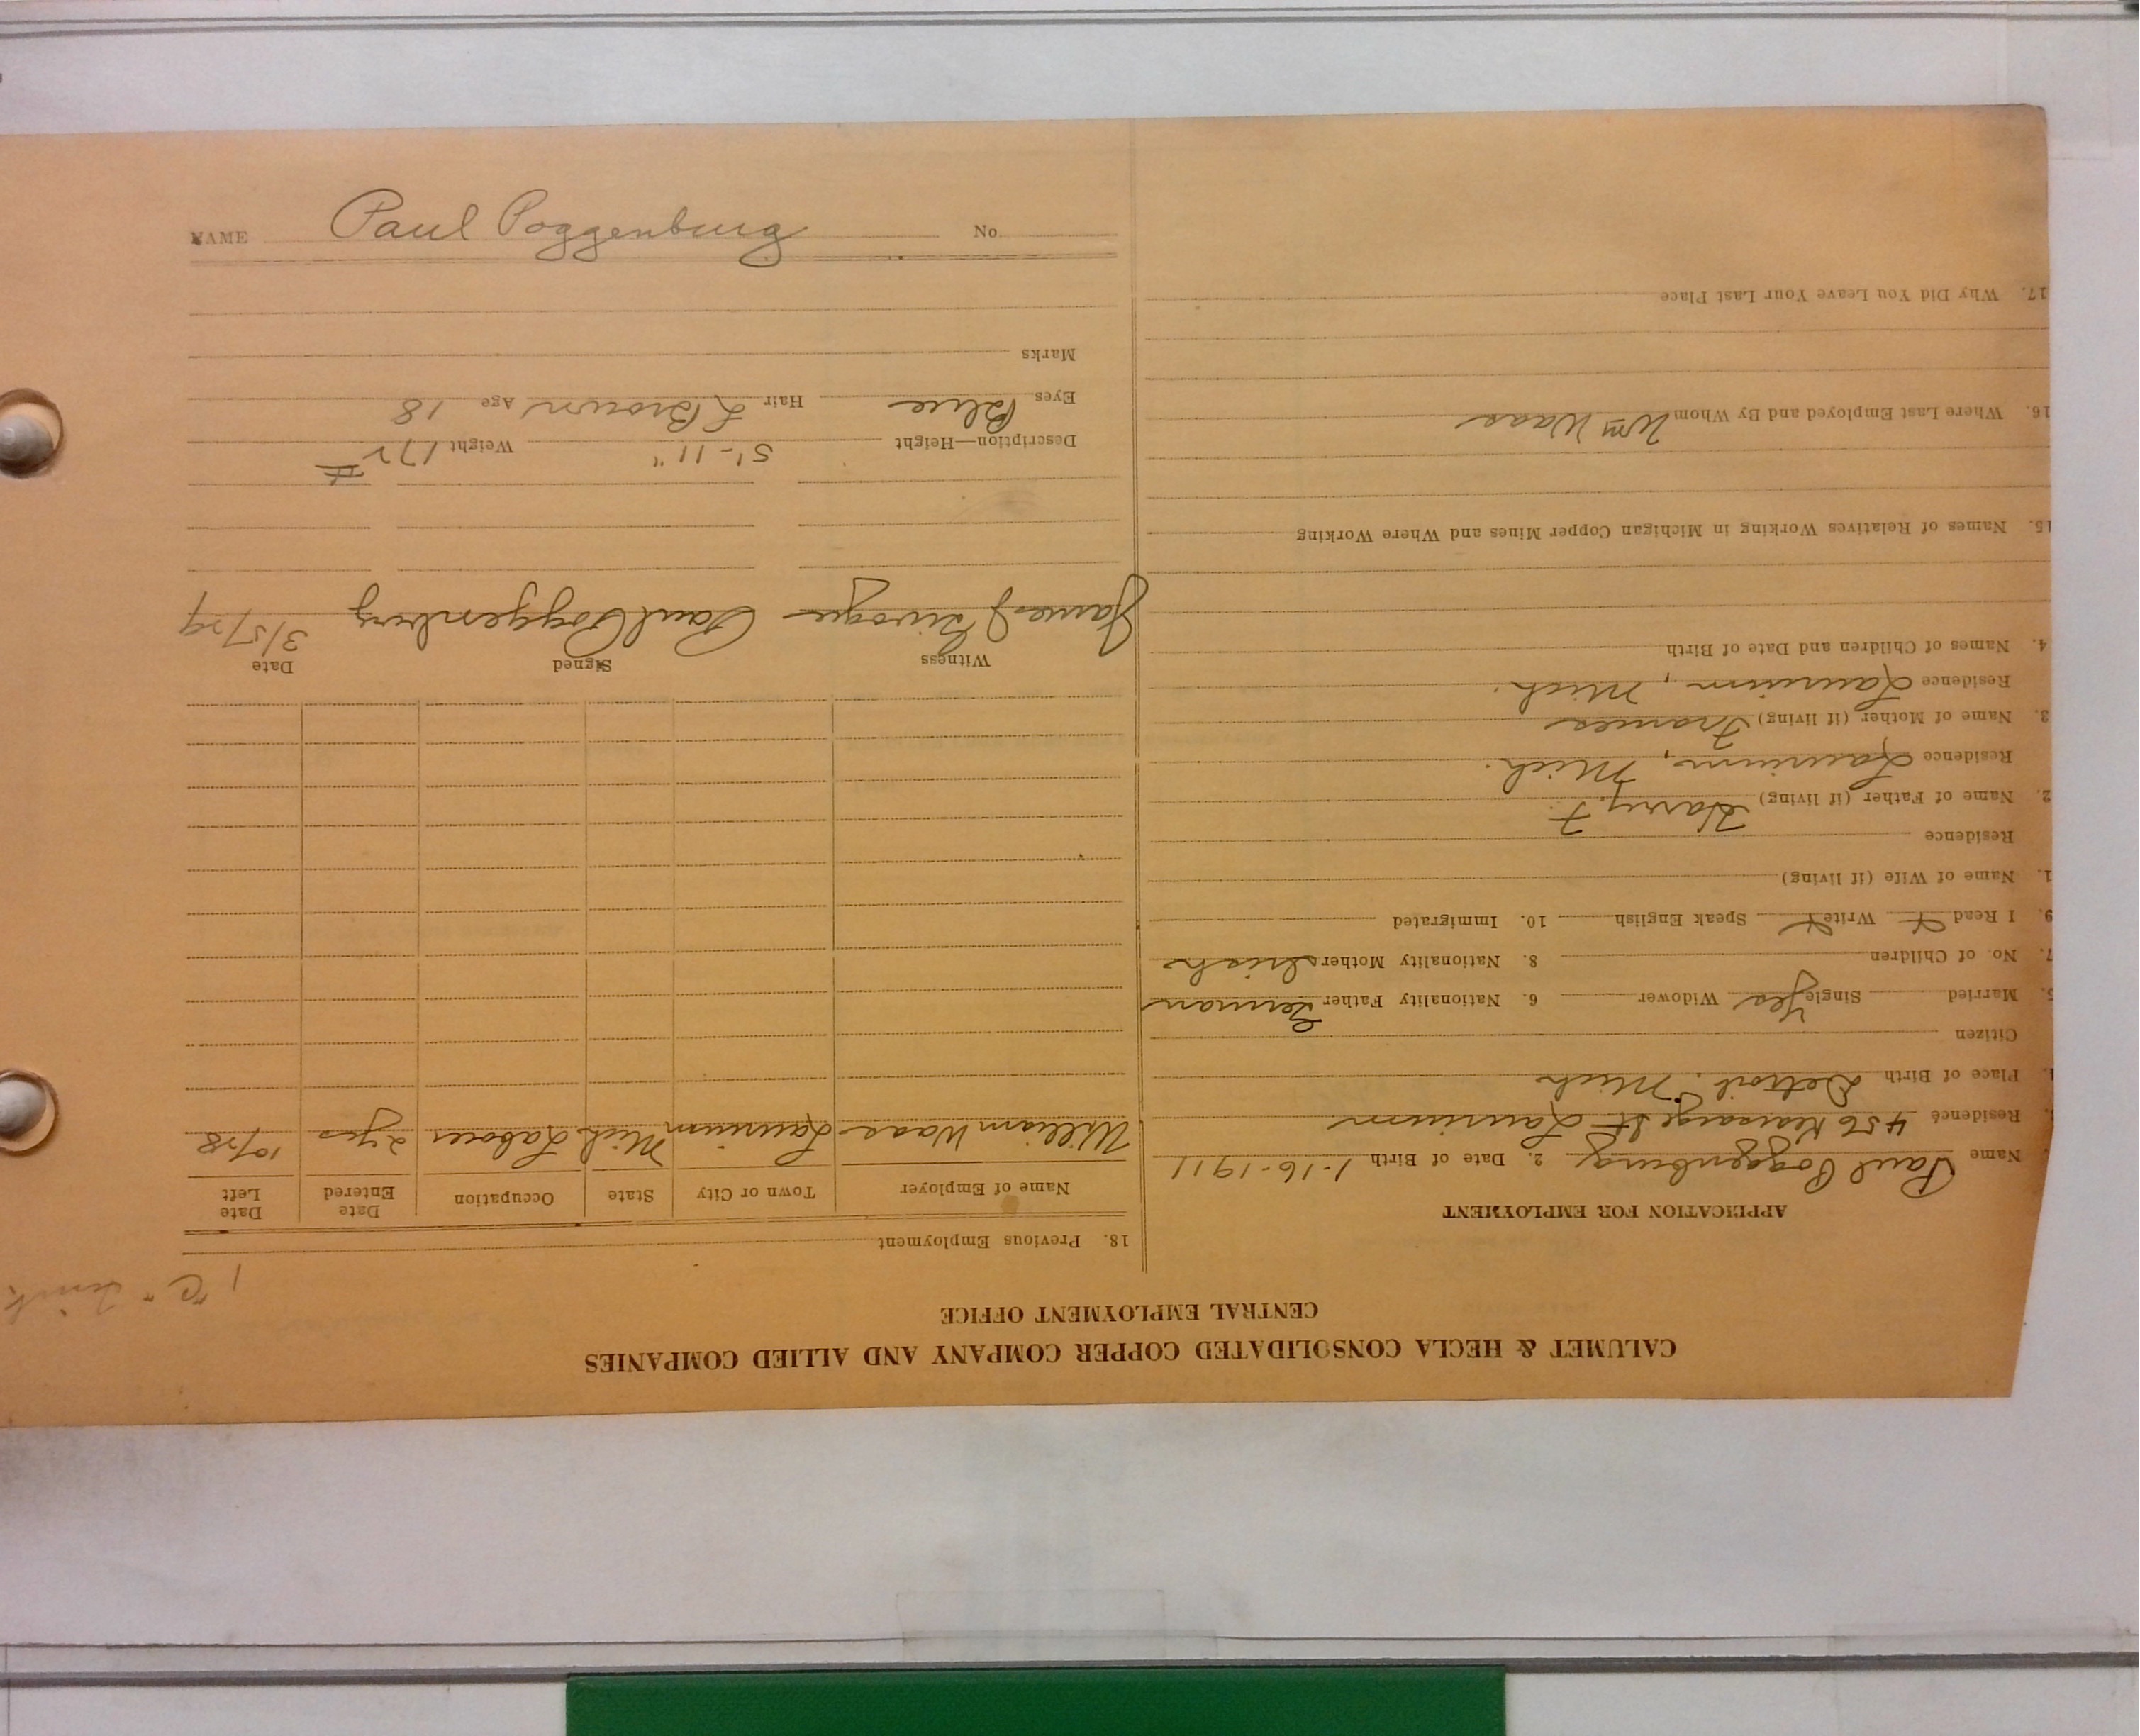 CALUMET & HECLA CONSOLIDATED COPPER COMPANY AND ALLIED COMPANIES
CENTRAL EMPLOYMENT OFFICE
APPLICATION FOR EMPLOYMENT
Name Paul Poggenburg 2. Date of Birth 1-16-1911
3. Residence 456 Kearsarge St. Laurium
4. Place of Birth Detroit, Mich
Citizen
5. Married Single Yes Widower 6. Nationality Father German
7. No. of Children 8. Nationality Mother Irish
9. I Read Write Speak English 10. Immigrated
1. Name of Wife (if living)
Residence
2. Name of Father (if living) Harry F.
Residence Laurium, Mich.
3. Name of Mother (if living) Frances
Residence Laurium, Mich.
4. Names of Children and Date of Birth
15. Names of Relatives Working in Michigan Copper Mines and Where Working
16. Where Last Employed and By Whom Wm Waas
17. Why Did You Leave Your Last Place
1 "C"
18. Previous Employment
Name of Employer Town or City State Occupation Date Entered Date Left
William Waas Laurium Mich Laborer 2 yrs 10/28
Witness Signed Date
James J Paul Poggenburg 3/5/29
Description—Height 5'-11" Weight 172 #
Eyes Blue Hair L Brown Age 18
Marks
NAME Paul Poggenburg No.